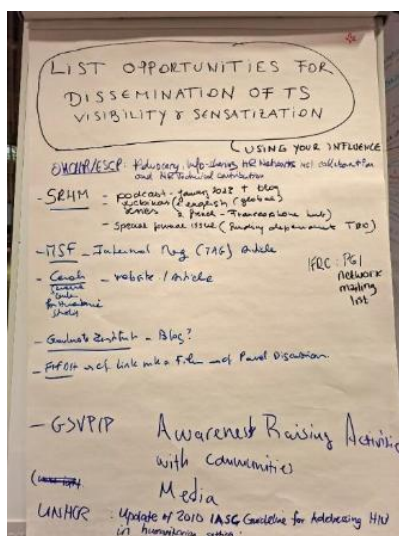 LIST OPPORTUNITIES FOR
DISSEMINATION OF TS
VISIBILITY & SENSATIZATION
(USING YOUR INFLUENCE
OHCHR/ESCP: Advocacy, info-sharing HR Networks
and HR Technical contribution
- SRHM - podcast - January 2023 + blog
(english (global)
series & Panel - Francophone hub)
- Special journal issue (funding dependent TBC)
- MSF - Internal Mag (TAG) Article
IFRC: PGI
network
mailing
list
- website / Article
Centre
for Humanitarian
Studies
- Graduate Institute - Blog?
- link Film Panel Discussion.
- GSVPIP Awareness Raising Activities
with Communities
Media
UNHCR : Update of 2010 IASC Guideline for Addressing HIV
in humanitarian